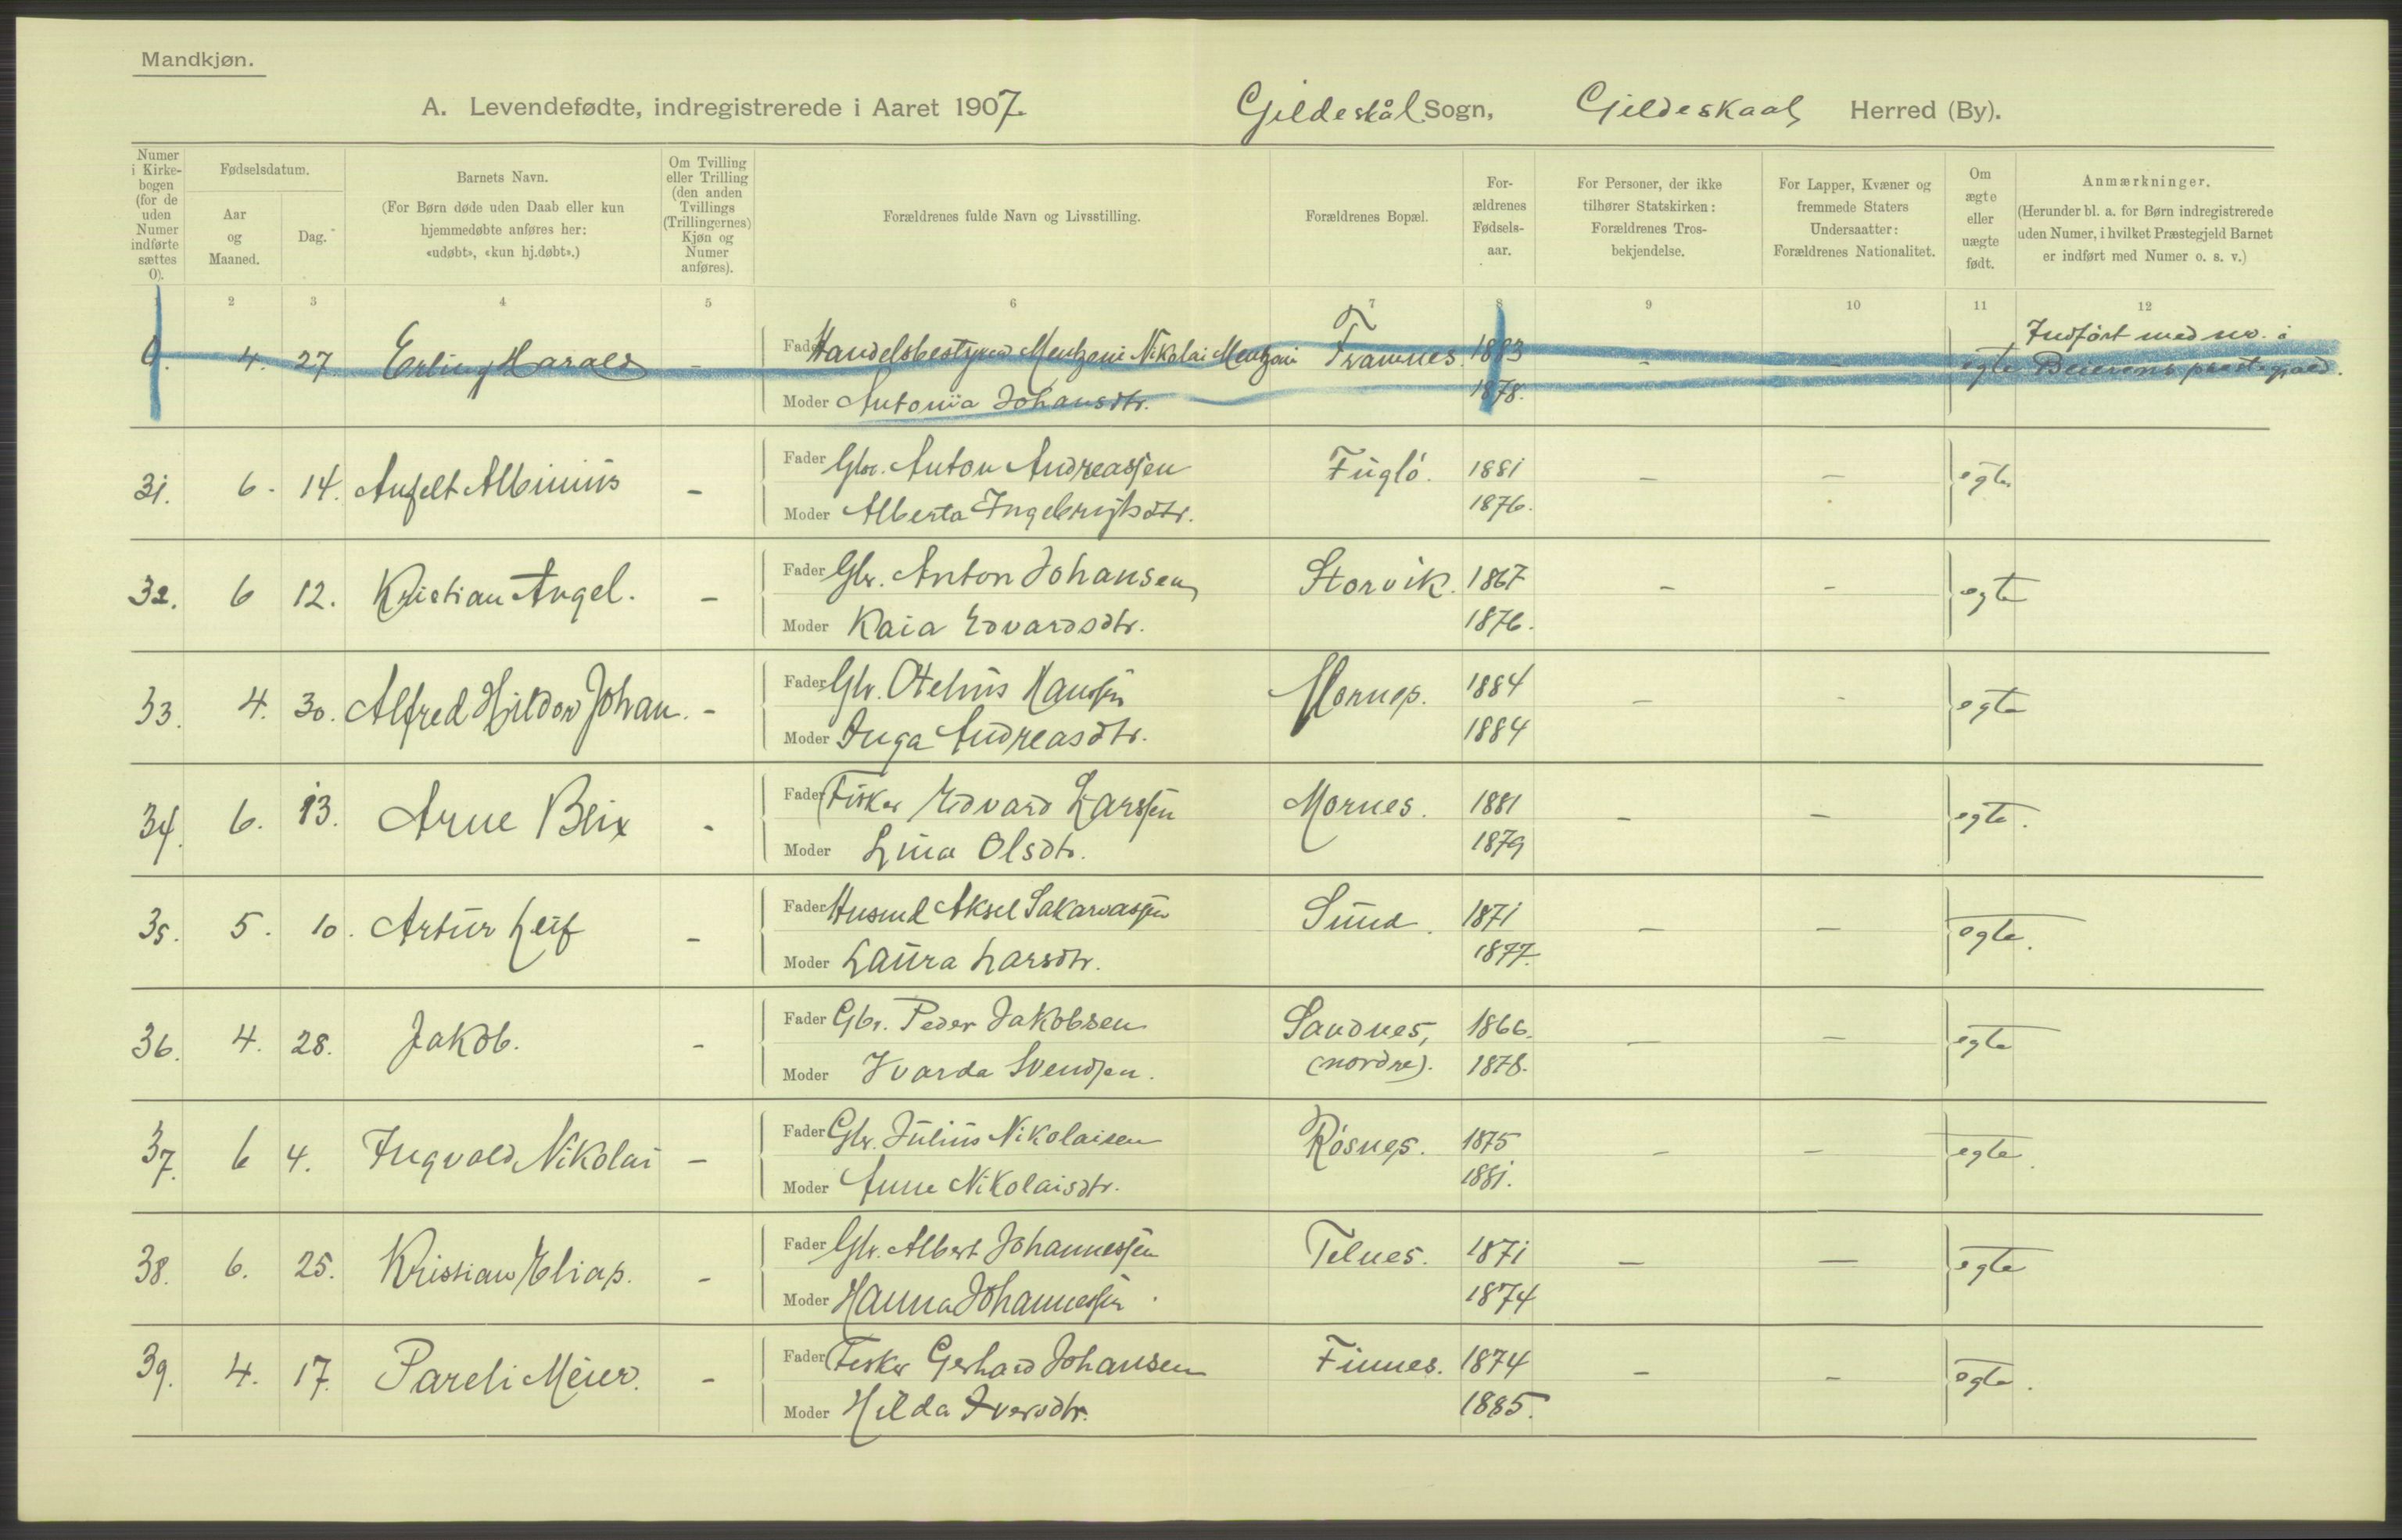 Mandkjøn.
A. Levendefødte, indregistrerede i Aaret 1907. Gildeskål Sogn, Gildeskaal Herred (By).
Numer i Kirkebogen (for de uden Numer indførte sættes 0).
Fødselsdatum.
Aar og Maaned.
Dag.
Barnets Navn.
(For Børn døde uden Daab eller kun hjemmedøbte anføres her: «udøbt», «kun hj.døbt».)
Om Tvilling eller Trilling (den anden Tvillings (Trillingernes) Kjøn og Numer anføres).
Forældrenes fulde Navn og Livsstilling.
Forældrenes Bopæl.
Forældrenes Fødselsaar.
For Personer, der ikke tilhører Statskirken: Forældrenes Trosbekjendelse.
For Lapper, Kvæner og fremmede Staters Undersaatter: Forældrenes Nationalitet.
Om ægte eller uægte født.
Anmærkninger.
(Herunder bl. a. for Børn indregistrerede uden Numer, i hvilket Præstegjeld Barnet er indført med Numer o. s. v.)
1 2 3 4 5 6 7 8 9 10 11 12
0. 4. 27 Erling Harald - Fader Handelsbestyrer Mentzoni Nikolai Mentzoni Framnes. 1883 - - egte Indført med no. i
Moder Antonia Johansdtr. 1878. Beierens prestegjeld.
31. 6. 14. Anfelt Albinius - Fader Gbr. Anton Andreassen Fuglö. 1881 - - egte
Moder Alberta Ingebrigtsdtr. 1876.
32. 6 12. Kristian Angel. - Fader Gbr. Anton Johansen Storvik. 1867 - - egte
Moder Kaia Edvardsdtr. 1876.
33. 4. 30. Alfred Hildor Johan. - Fader Gbr. Otelius Hansen Mornes. 1884 - - egte
Moder Inga Andreasdtr. 1884
34. 6. 13. Arne Blix - Fader Fisker Edvard Larssen Mornes. 1881 - - egte.
Moder Lina Olsdtr. 1879
35. 5. 10. Artur Leif - Fader Husmd Aksel Sakariassen Sund. 1871 - - egte.
Moder Laura Larsdtr. 1877.
36. 4. 28. Jakob. - Fader Gbr. Peder Jakobsen Sandnes, 1866. - - egte
Moder Ivarda Svendsen. (nordre). 1878.
37. 6 4. Ingvald Nikolai - Fader Gbr. Julius Nikolaisen Rösnes. 1875 - - egte.
Moder Anne Nikolaisdtr. 1881.
38. 6. 25. Kristian Elias. - Fader Gbr. Albert Johannessen Telnes. 1871 - - egte
Moder Hanna Johannessen. 1874
39. 4. 17. Pareli Meier. - Fader Fisker Gerhard Johansen Finnes. 1874 - - egte.
Moder Hilda Iversdtr. 1885.